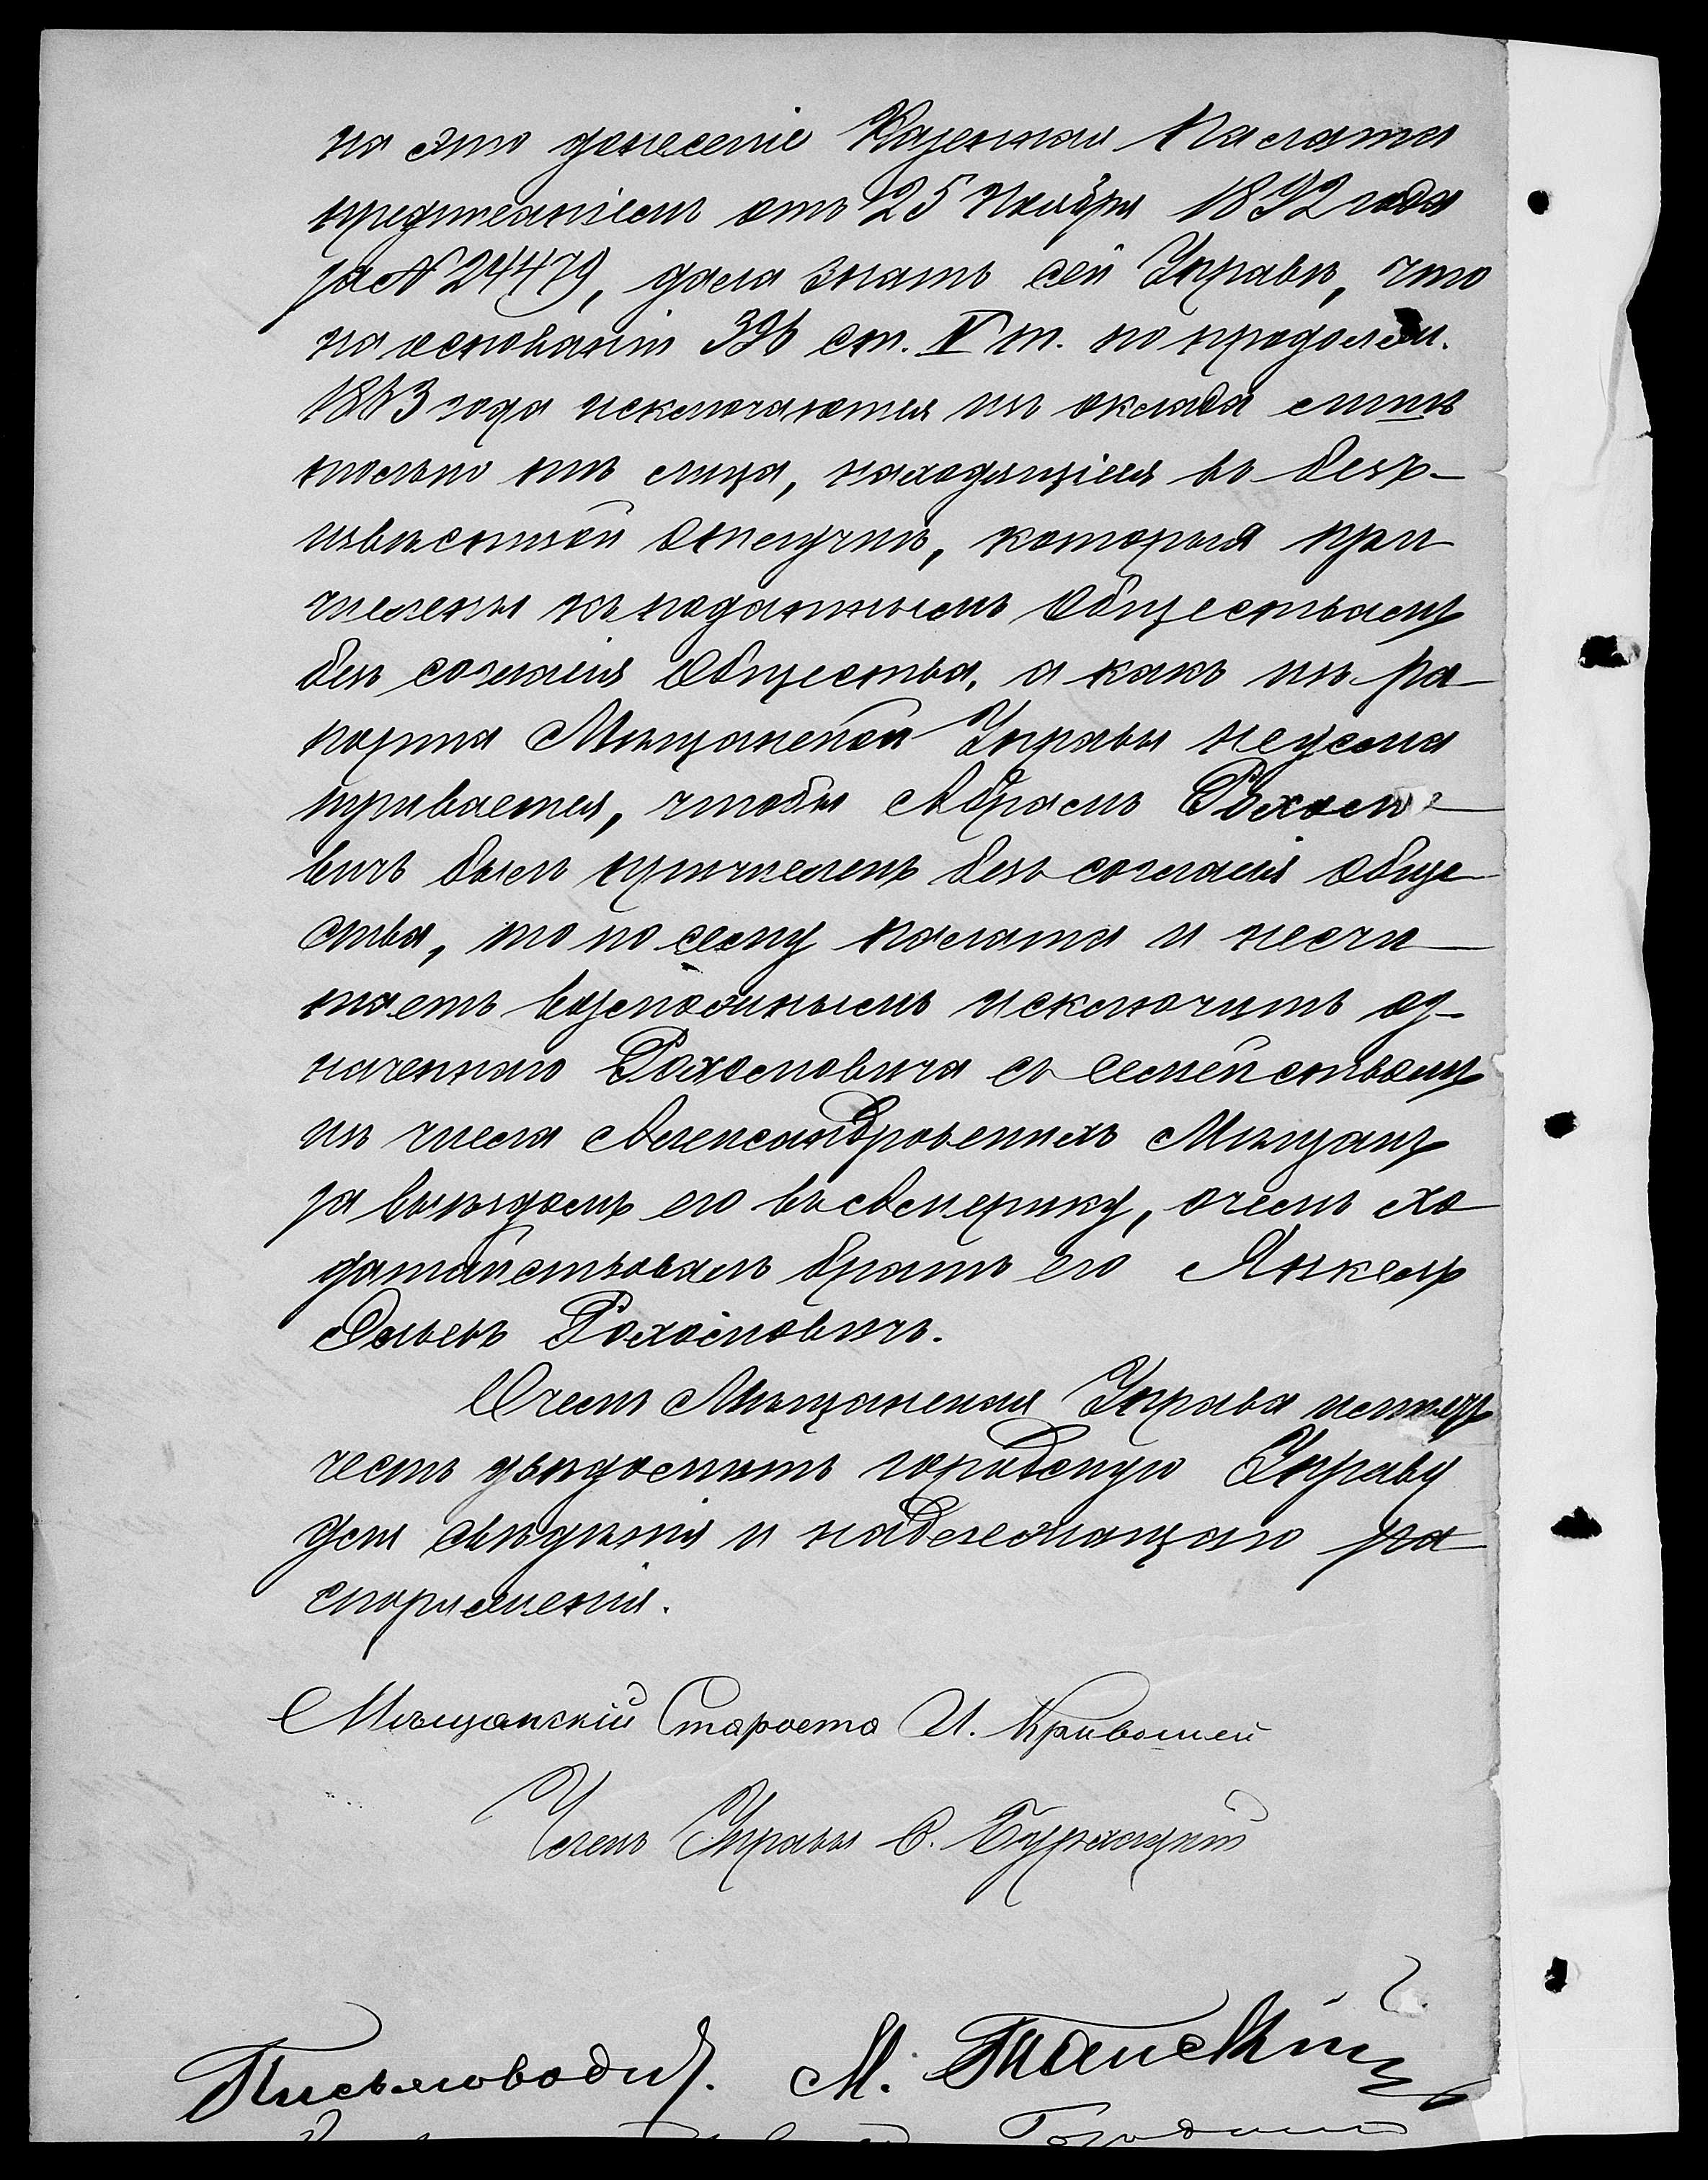 на это донесеніе Казенная Палата
предписаніемъ отъ 25 Ноября 1892 года
за № 24479, дала знать сей Управѣ, что
на основаніи 396 ст. V т. по продолж.
1883 года исключаются изъ оклада
только тѣ лица, находящіяся въ безъ-
извѣстной отлучкѣ, которыя при-
числены къ податнымъ Обществамъ
безъ согласія Общества, а какъ изъ ра-
порта Мѣщанской Управы неусма
тривается, чтобы Абрамъ Рохомо-
вичъ былъ причисленъ безъ согласія обще-
ства, то по сему палата и несчи-
таетъ возможнымъ исключить оз-
наченнаго Рохомовича съ семействомъ
изъ числа Александровскихъ Мѣщанъ
за выѣздомъ его въ Америку, о чемъ хо-
датайствовалъ братъ его Янкель
Рохомовичъ.
О чемъ Мѣщанская Управа имѣетъ
честь увѣдомить городскую Управу
для свѣдѣнія и надлежащаго ра-
споряженія.
Мѣщанскій Староста И. Кривошей
Членъ Управы
Письмоводит. М.